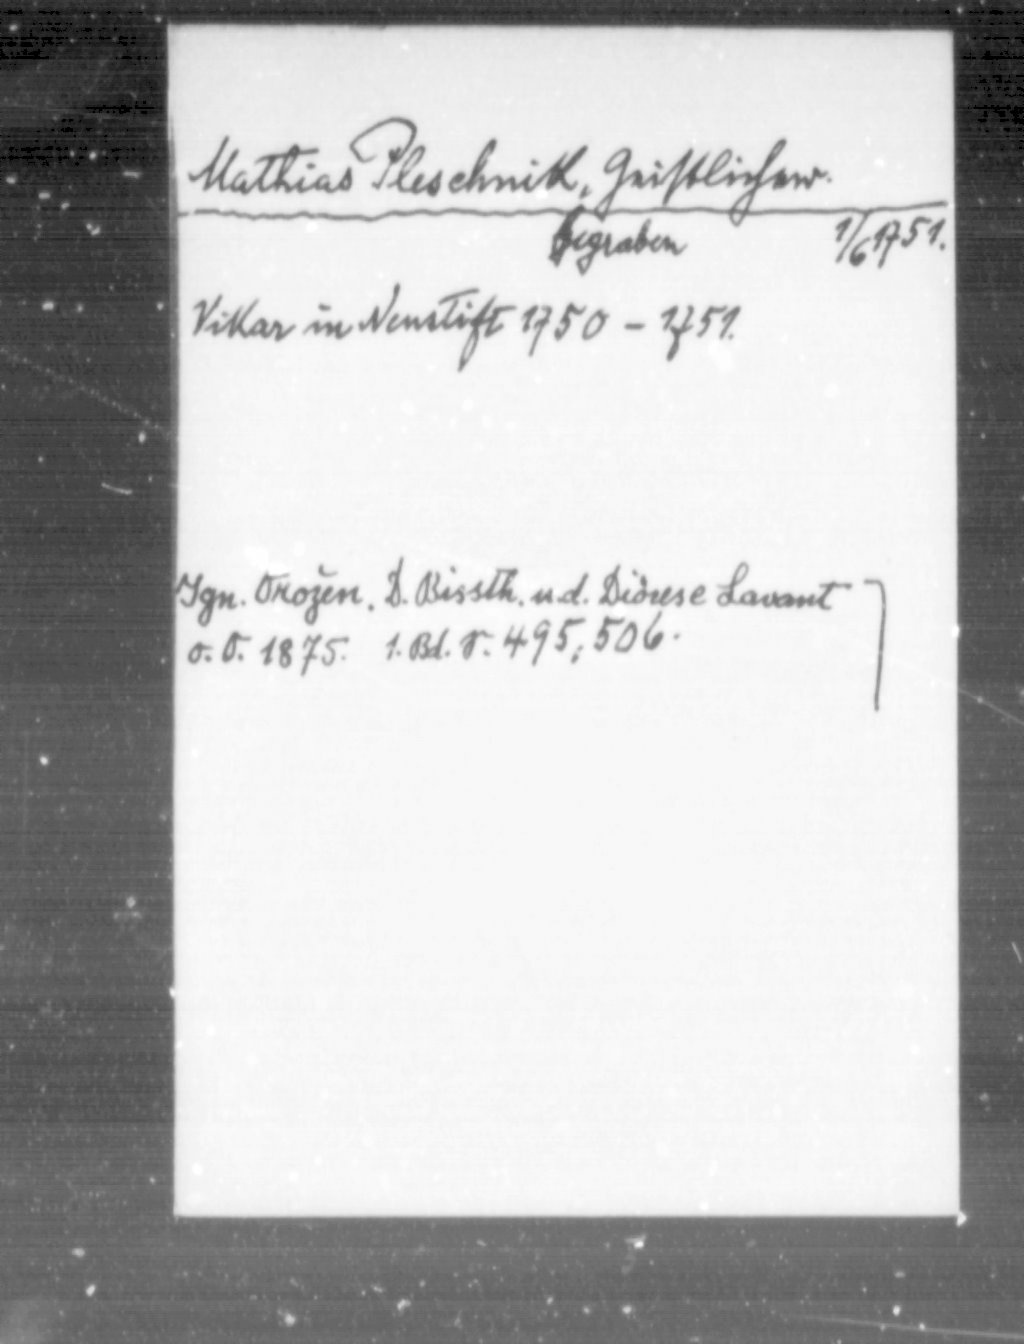 Mathias Pleschnik, Geistlicher.
begraben 1/6 1751.
Vikar in Neustift 1750 - 1751.
Ign. Orožen. D. Bissth. u. d. Diöcese Lavant
o. O. 1875. 1. Bd. S. 495; 506.